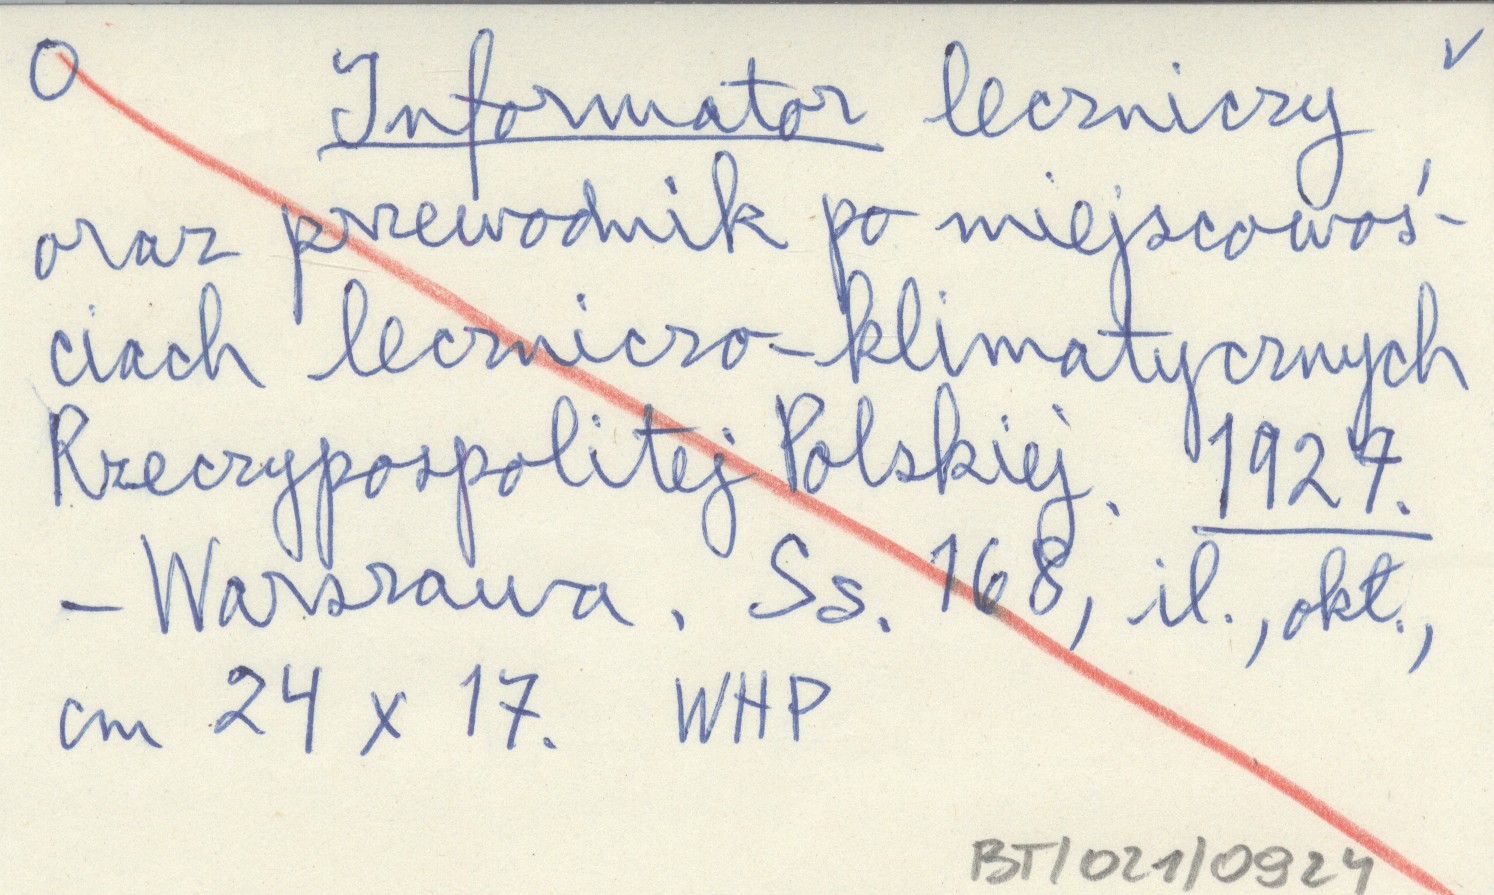 O Informator leczniczy ✓
oraz przewodnik po miejscowoś-
ciach leczniczo-klimatycznych
Rzeczypospolitej Polskiej. 1927.
– Warszawa. Ss. 168, il., okł.,
cm 24 x 17. WHP
BT/021/0924